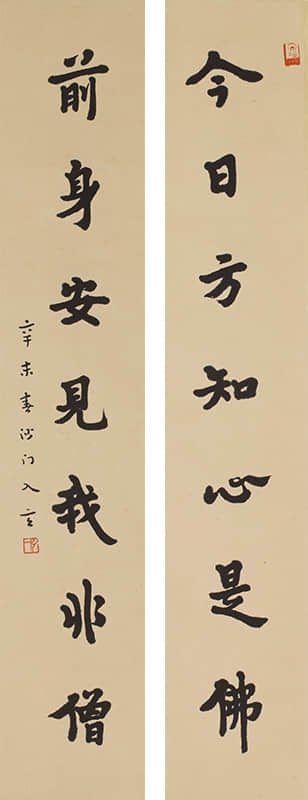 今日方知心是佛
前身安見我非僧
辛未春沙门入玄